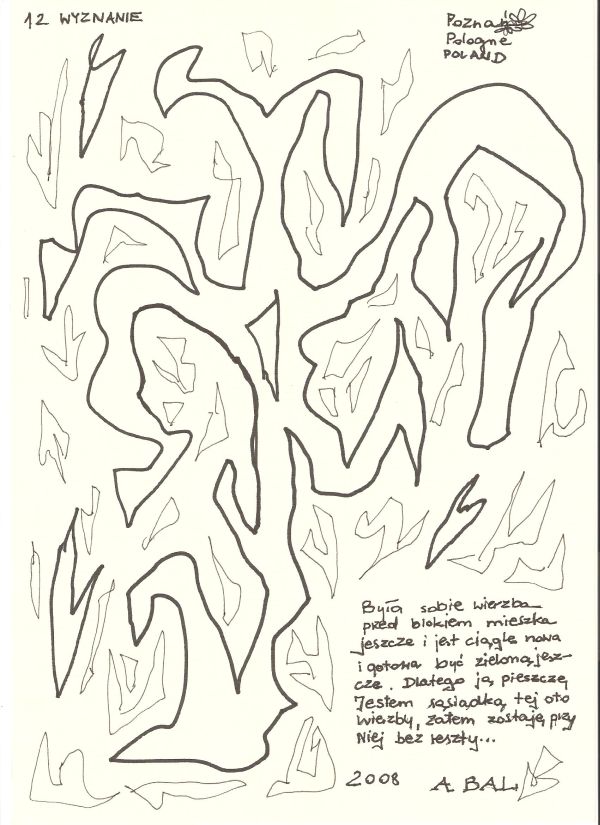 12 WYZNANIE
Poznań
Pologne
POLAND
Była sobie wierzba
przed blokiem mieszka
jeszcze i jest ciągle nowa
i gotowa być zieloną jesz-
cze. Dlatego ją pieszczę
Jestem sąsiadką tej oto
Wierzby, zatem zostaję przy
Niej bez reszty...
2008 A BAL